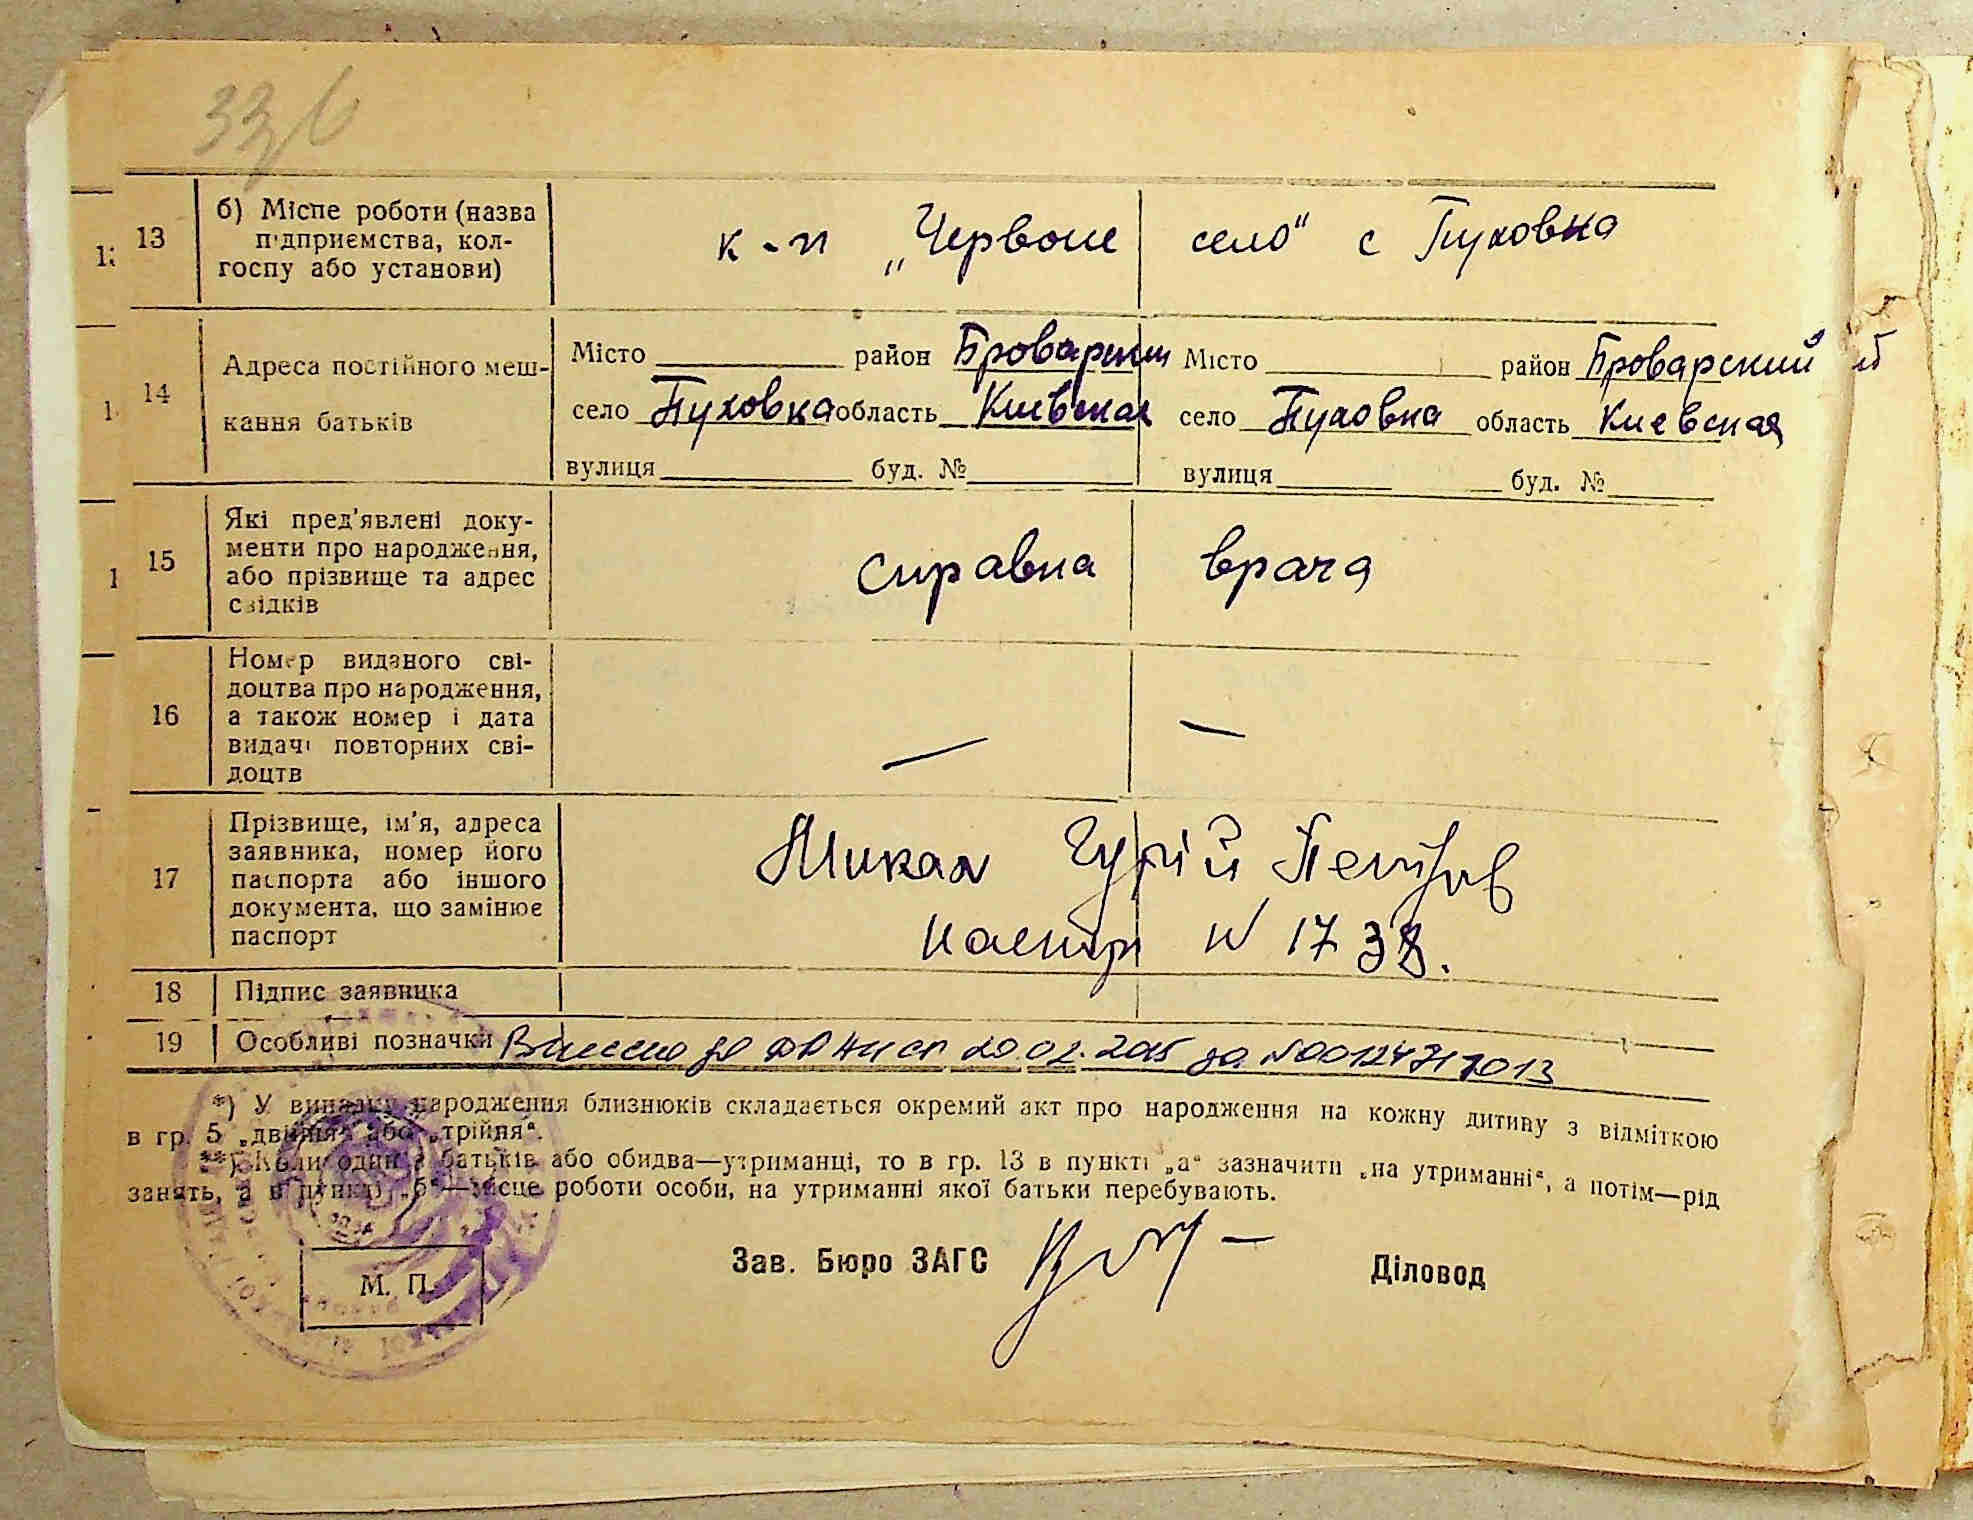 33
13
б) Місце роботи (назва
підприємства, кол-
госпу або установи)
к-п „Червоне село“ с Пуховка
14
Адреса постійного меш-
кання батьків
Місто район Броварский
село Пуховка область Киевская
вулиця буд. №
Місто район Броварский
село Пуховка область Киевская
вулиця буд. №
15
Які пред'явлені доку-
менти про народження,
або прізвище та адрес
свідків
справка врача
16
Номер виданого сві-
доцтва про народження,
а також номер і дата
видачі повторних сві-
доцтв
— —
17
Прізвище, ім'я, адреса
заявника, номер його
паспорта або іншого
документа, що замінює
паспорт
Микал Гурій Петров
паспорт N 1738.
18
Підпис заявника
19
Особливі позначки Внесено до 20.02.2015 за N00124717013
*) У випадку народження близнюків складається окремий акт про народження на кожну дитину з відміткою
в гр. 5 „двійня“ або „трійня“.
**) Коли один з батьків або обидва—утриманці, то в гр. 13 в пункті „а“ зазначити „на утриманні“, а потім—рід
занять, а в пункті „б“—місце роботи особи, на утриманні якої батьки перебувають.
М. П.
Зав. Бюро ЗАГС
Діловод